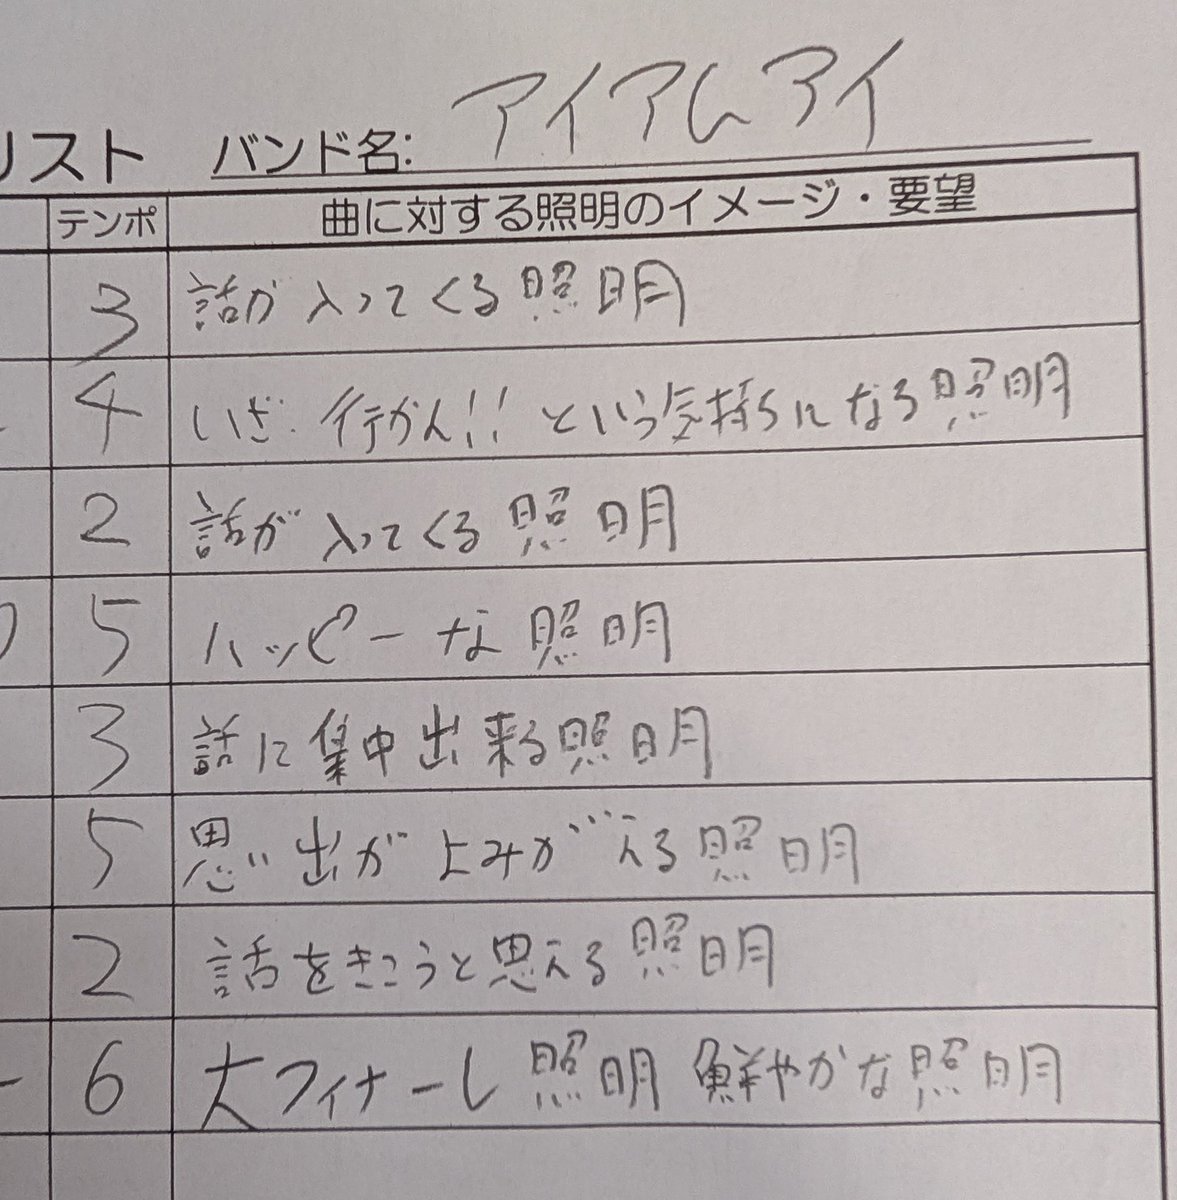 リスト バンド名: アイアムアイ
テンポ 曲に対する照明のイメージ・要望
3 話が入ってくる照明
4 いざ行かん!!という気持ちになる照明
2 話が入ってくる照明
5 ハッピーな照明
3 話に集中出来る照明
5 思い出がよみがえる照明
2 話をきこうと思える照明
6 大フィナーレ照明 鮮やかな照明